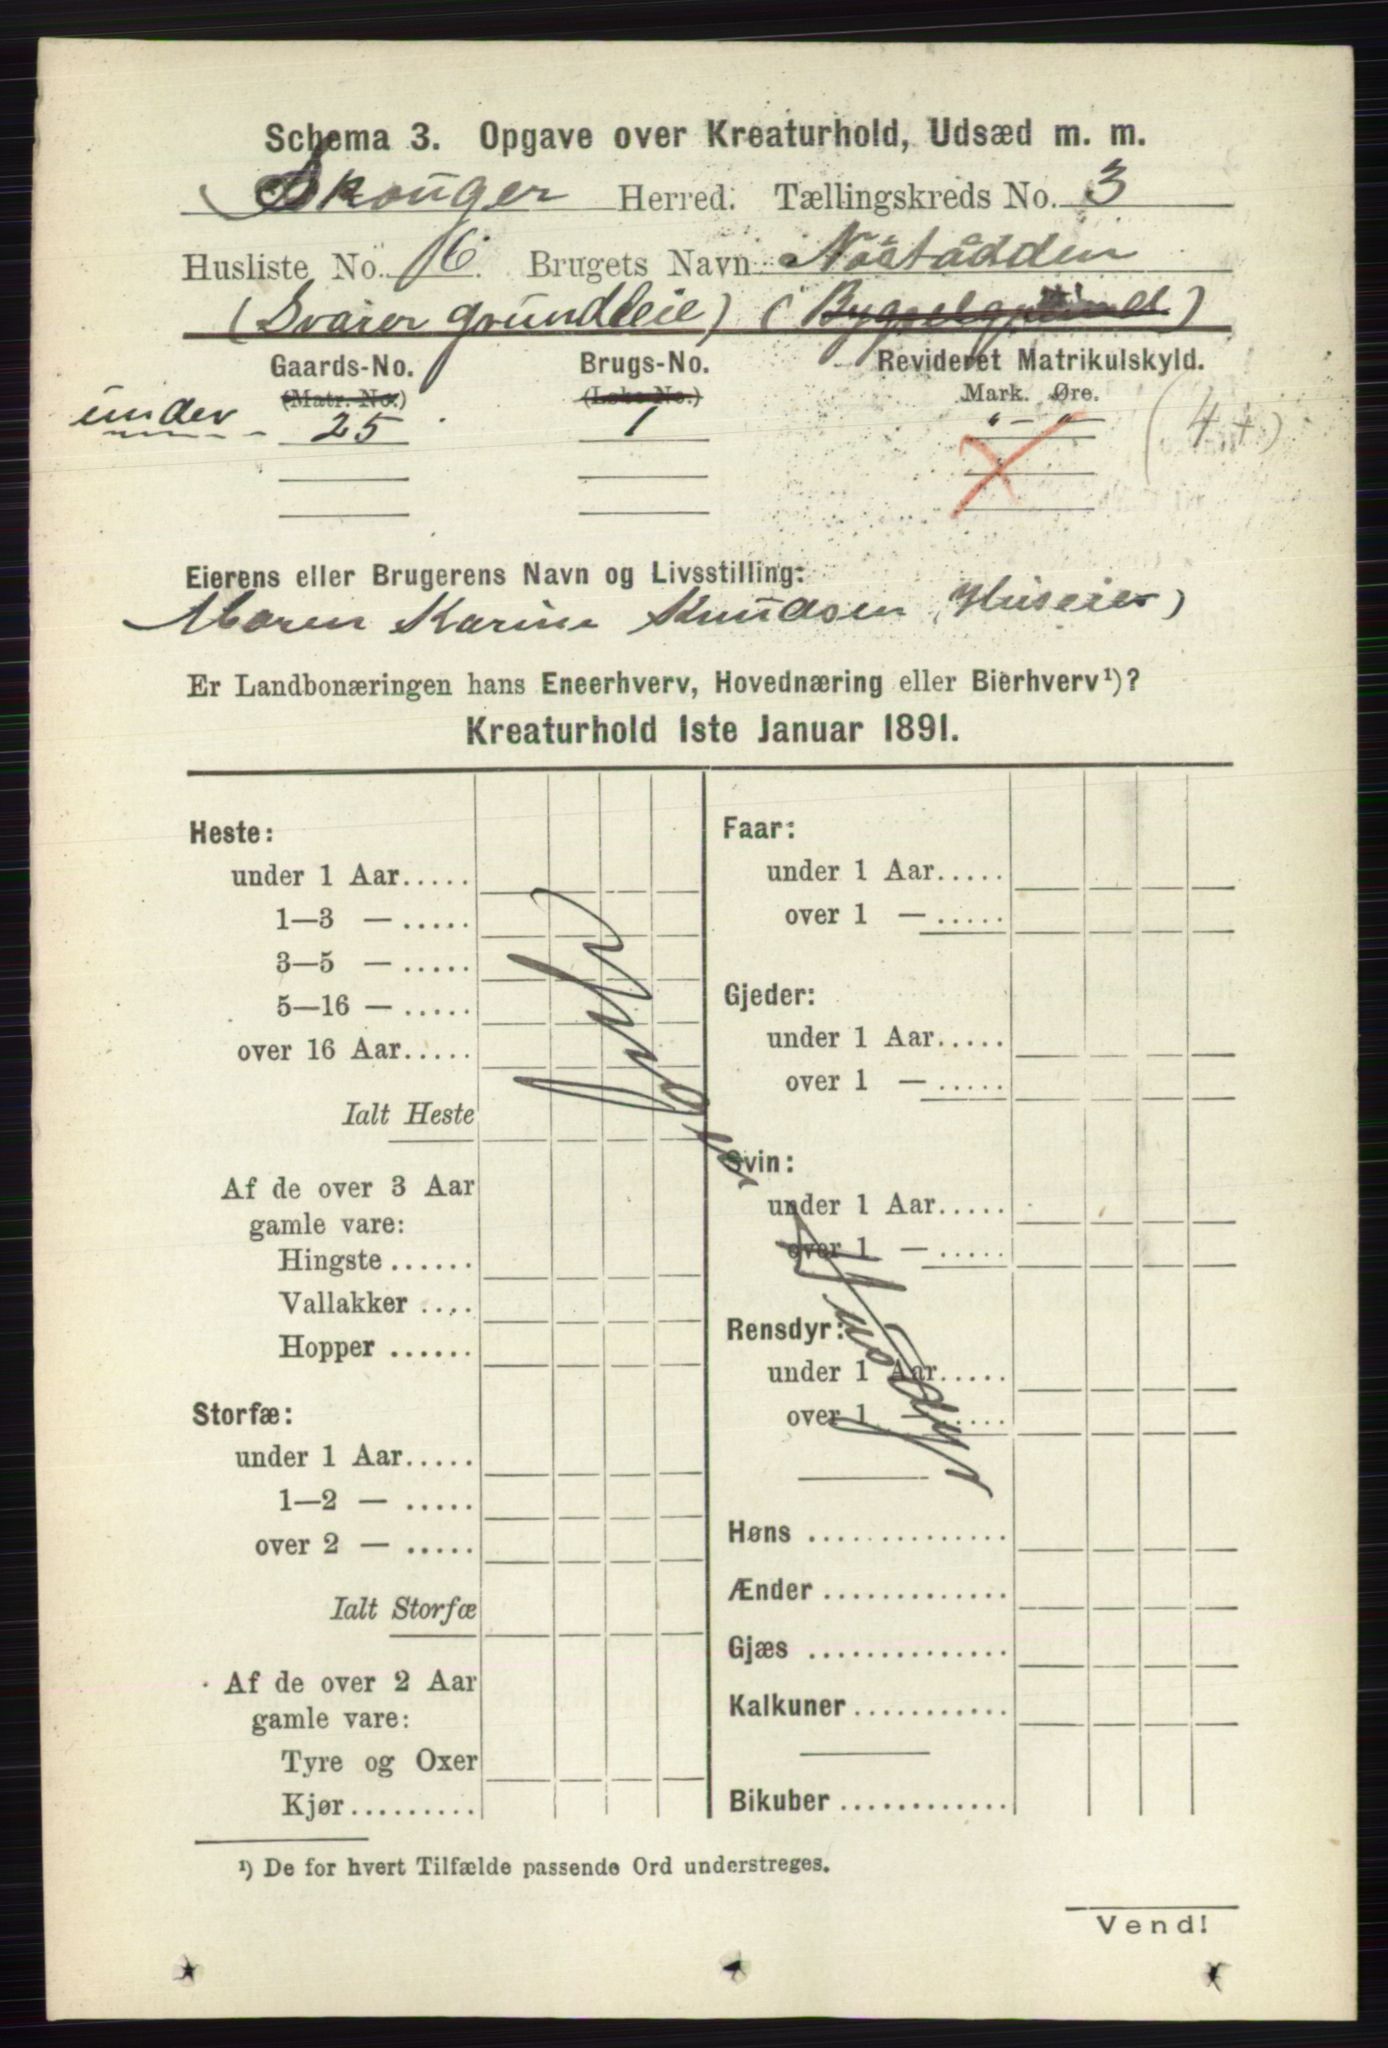 Schema 3. Opgave over Kreaturhold, Udsæd m. m.
Skouger Herred. Tællingskreds No. 3
Husliste No. 6. Brugets Navn Nöstådden
(Svarer grundleie) (Byggselgrund)
Gaards-No. Brugs-No. Revideret Matrikulskyld.
(Matr. No.) (Løbe No.) Mark. Øre.
under 25 1 " - " (4 +)
Eierens eller Brugerens Navn og Livsstilling:
Maren Karine Knudsen (Huseier)
Er Landbonæringen hans Eneerhverv, Hovednæring eller Bierhverv¹)?
Kreaturhold 1ste Januar 1891.
Heste:
under 1 Aar.....
1—3 — .....
3—5 — .....
5—16 — .....
over 16 Aar.....
Ialt Heste
Af de over 3 Aar
gamle vare:
Hingste ......
Vallakker ....
Hopper ......
Storfæ:
under 1 Aar.....
1—2 — .....
over 2 — .....
Ialt Storfæ
Af de over 2 Aar
gamle vare:
Tyre og Oxer
Kjør.........
Faar:
under 1 Aar.....
over 1 — .....
Gjeder:
under 1 Aar.....
over 1 — .....
Svin:
under 1 Aar.....
over 1 — .....
Rensdyr:
under 1 Aar.....
over 1 — .....
Høns ..............
Ænder .............
Gjæs ..............
Kalkuner ...........
Bikuber ............
¹) De for hvert Tilfælde passende Ord understreges.
Vend!